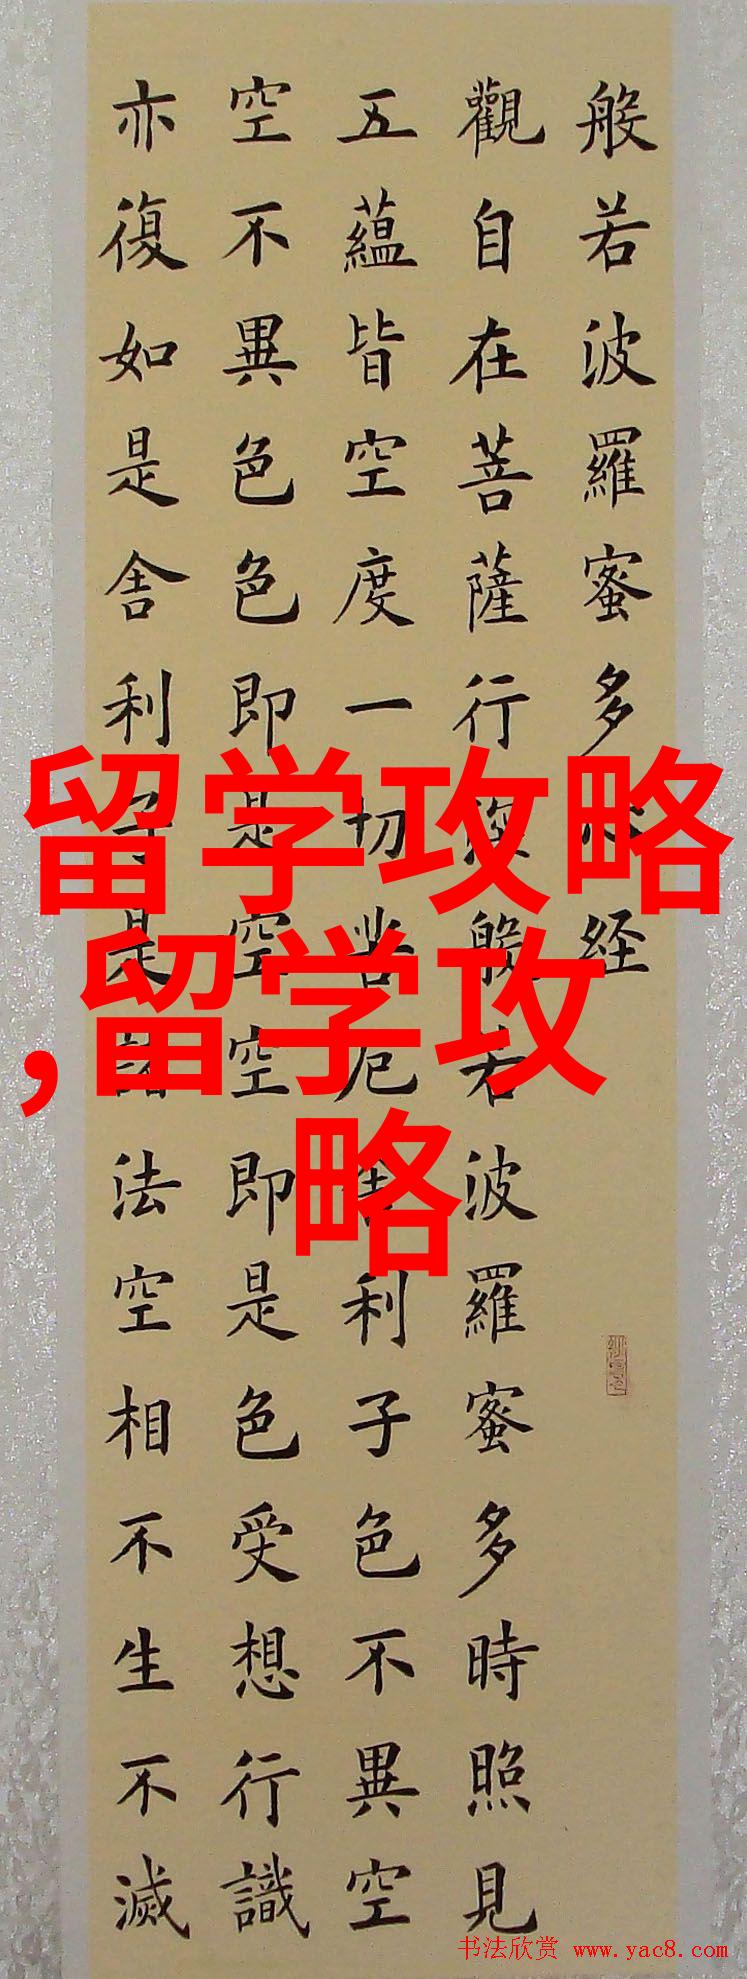 般若波羅蜜多心经
觀自在菩薩行深般若波羅蜜多時照見
五蘊皆空度一切苦厄舍利子色不異空
空不異色色即是空空即是色受想行識
亦復如是舍利子是諸法空相不生不滅
留学攻略
,留学攻
略
书法欣赏 www.yac8.com